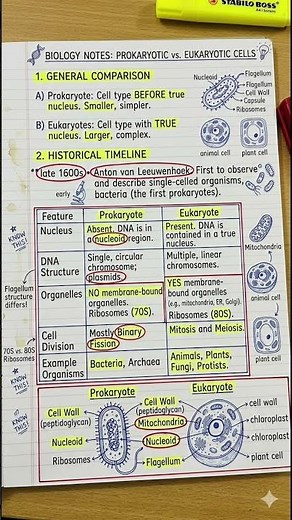 STABILO BOSS
BIOLOGY NOTES: PROKARYOTIC vs. EUKARYOTIC CELLS
1. GENERAL COMPARISON
A) Prokaryote: Cell type BEFORE true
nucleus. Smaller, simpler.
B) Eukaryotes: Cell type with TRUE
nucleus. Larger, complex.
Nucleoid
Flagellum
Flagellum
Cell Wall
Capsule
Ribosomes
animal cell
plant cell
2. HISTORICAL TIMELINE
late 1600s
Anton van Leeuwenhoek: First to observe
and describe single-celled organisms,
bacteria (the first prokaryotes).
early
Feature Prokaryote Eukaryote
Nucleus
Absent. DNA is in
a nucleoid region.
Present. DNA is
contained in a true
nucleus.
DNA
Structure
Single, circular
chromosome;
plasmids.
Multiple, linear
chromosomes.
Organelles
NO membrane-bound
organelles.
Ribosomes (70S).
YES membrane-
bound organelles
(e.g., mitochondria, ER, Golgi).
Ribosomes (80S).
Cell
Division
Mostly Binary
Fission
Mitosis and Meiosis.
Example
Organisms
Bacteria, Archaea
Animals, Plants,
Fungi, Protists.
KNOW
THIS!
Flagellum
structure
differs!
70S vs. 80S
Ribosomes
KNOW
THIS!
KNOW
THIS!
Mitochondria
animal cell
plant cell
Prokaryote
Eukaryote
Cell Wall
(peptidoglycan)
Nucleoid
Ribosomes
Cell Wall
(peptidoglycan)
Mitochondria
Nucleoid
Flagellum
cell wall
chloroplast
chloroplast
plant cell